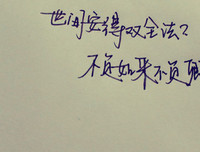 世间安得双全法?
不负如来不负卿